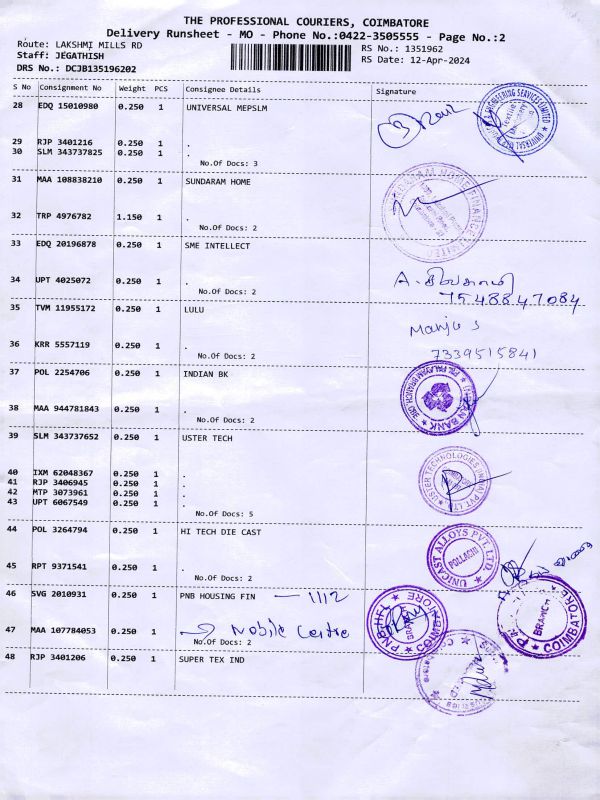 THE PROFESSIONAL COURIERS, COIMBATORE
Delivery Runsheet - MO - Phone No.:0422-3505555 - Page No.:2
Route: LAKSHMI MILLS RD
Staff: JEGATHISH
DRS No.: DCJB135196202
RS No.: 1351962
RS Date: 12-Apr-2024
S No Consignment No Weight PCS Consignee Details Signature
28 EDQ 15010980 0.250 1 UNIVERSAL MEPSLM
29 RJP 3401216 0.250 1 .
30 SLM 343737825 0.250 1 .
No.Of Docs: 3
31 MAA 108838210 0.250 1 SUNDARAM HOME
32 TRP 4976782 1.150 1 .
No.Of Docs: 2
33 EDQ 20196878 0.250 1 SME INTELLECT
34 UPT 4025072 0.250 1 .
No.Of Docs: 2
7548847084
35 TVM 11955172 0.250 1 LULU
Manju S
36 KRR 5557119 0.250 1 .
7339515841
No.Of Docs: 2
37 POL 2254706 0.250 1 INDIAN BK
INDIAN BANK
38 MAA 944781843 0.250 1 .
No.Of Docs: 2
39 SLM 343737652 0.250 1 USTER TECH
USTER TECHNOLOGIES (INDIA) PVT. LTD
40 IXM 62048367 0.250 1 .
41 RJP 3406945 0.250 1 .
42 MTP 3073961 0.250 1 .
43 UPT 6067549 0.250 1 .
No.Of Docs: 5
44 POL 3264794 0.250 1 HI TECH DIE CAST
UNICAST ALLOYS PVT. LTD.
POLLACHI
45 RPT 9371541 0.250 1 .
No.Of Docs: 2
46 SVG 2010931 0.250 1 PNB HOUSING FIN — 1112
BRANCH
COIMBATORE
BRANCH
COIMBATORE
47 MAA 107784053 0.250 1 Mobile Centre
No.Of Docs: 2
48 RJP 3401206 0.250 1 SUPER TEX IND